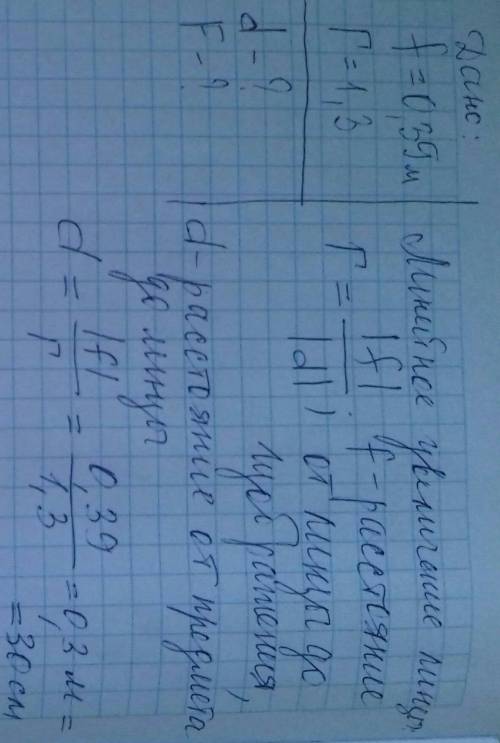 Дано:
f = 0,39 м
Г = 1,3
d - ?
F - ?
Линейное увеличение линзы
Г = |f| / |d| ; f - расстояние
от линзы до
изображения,
d - расстояние от предмета
до линзы
d = |f| / Г = 0,39 / 1,3 = 0,3 м =
= 30 см